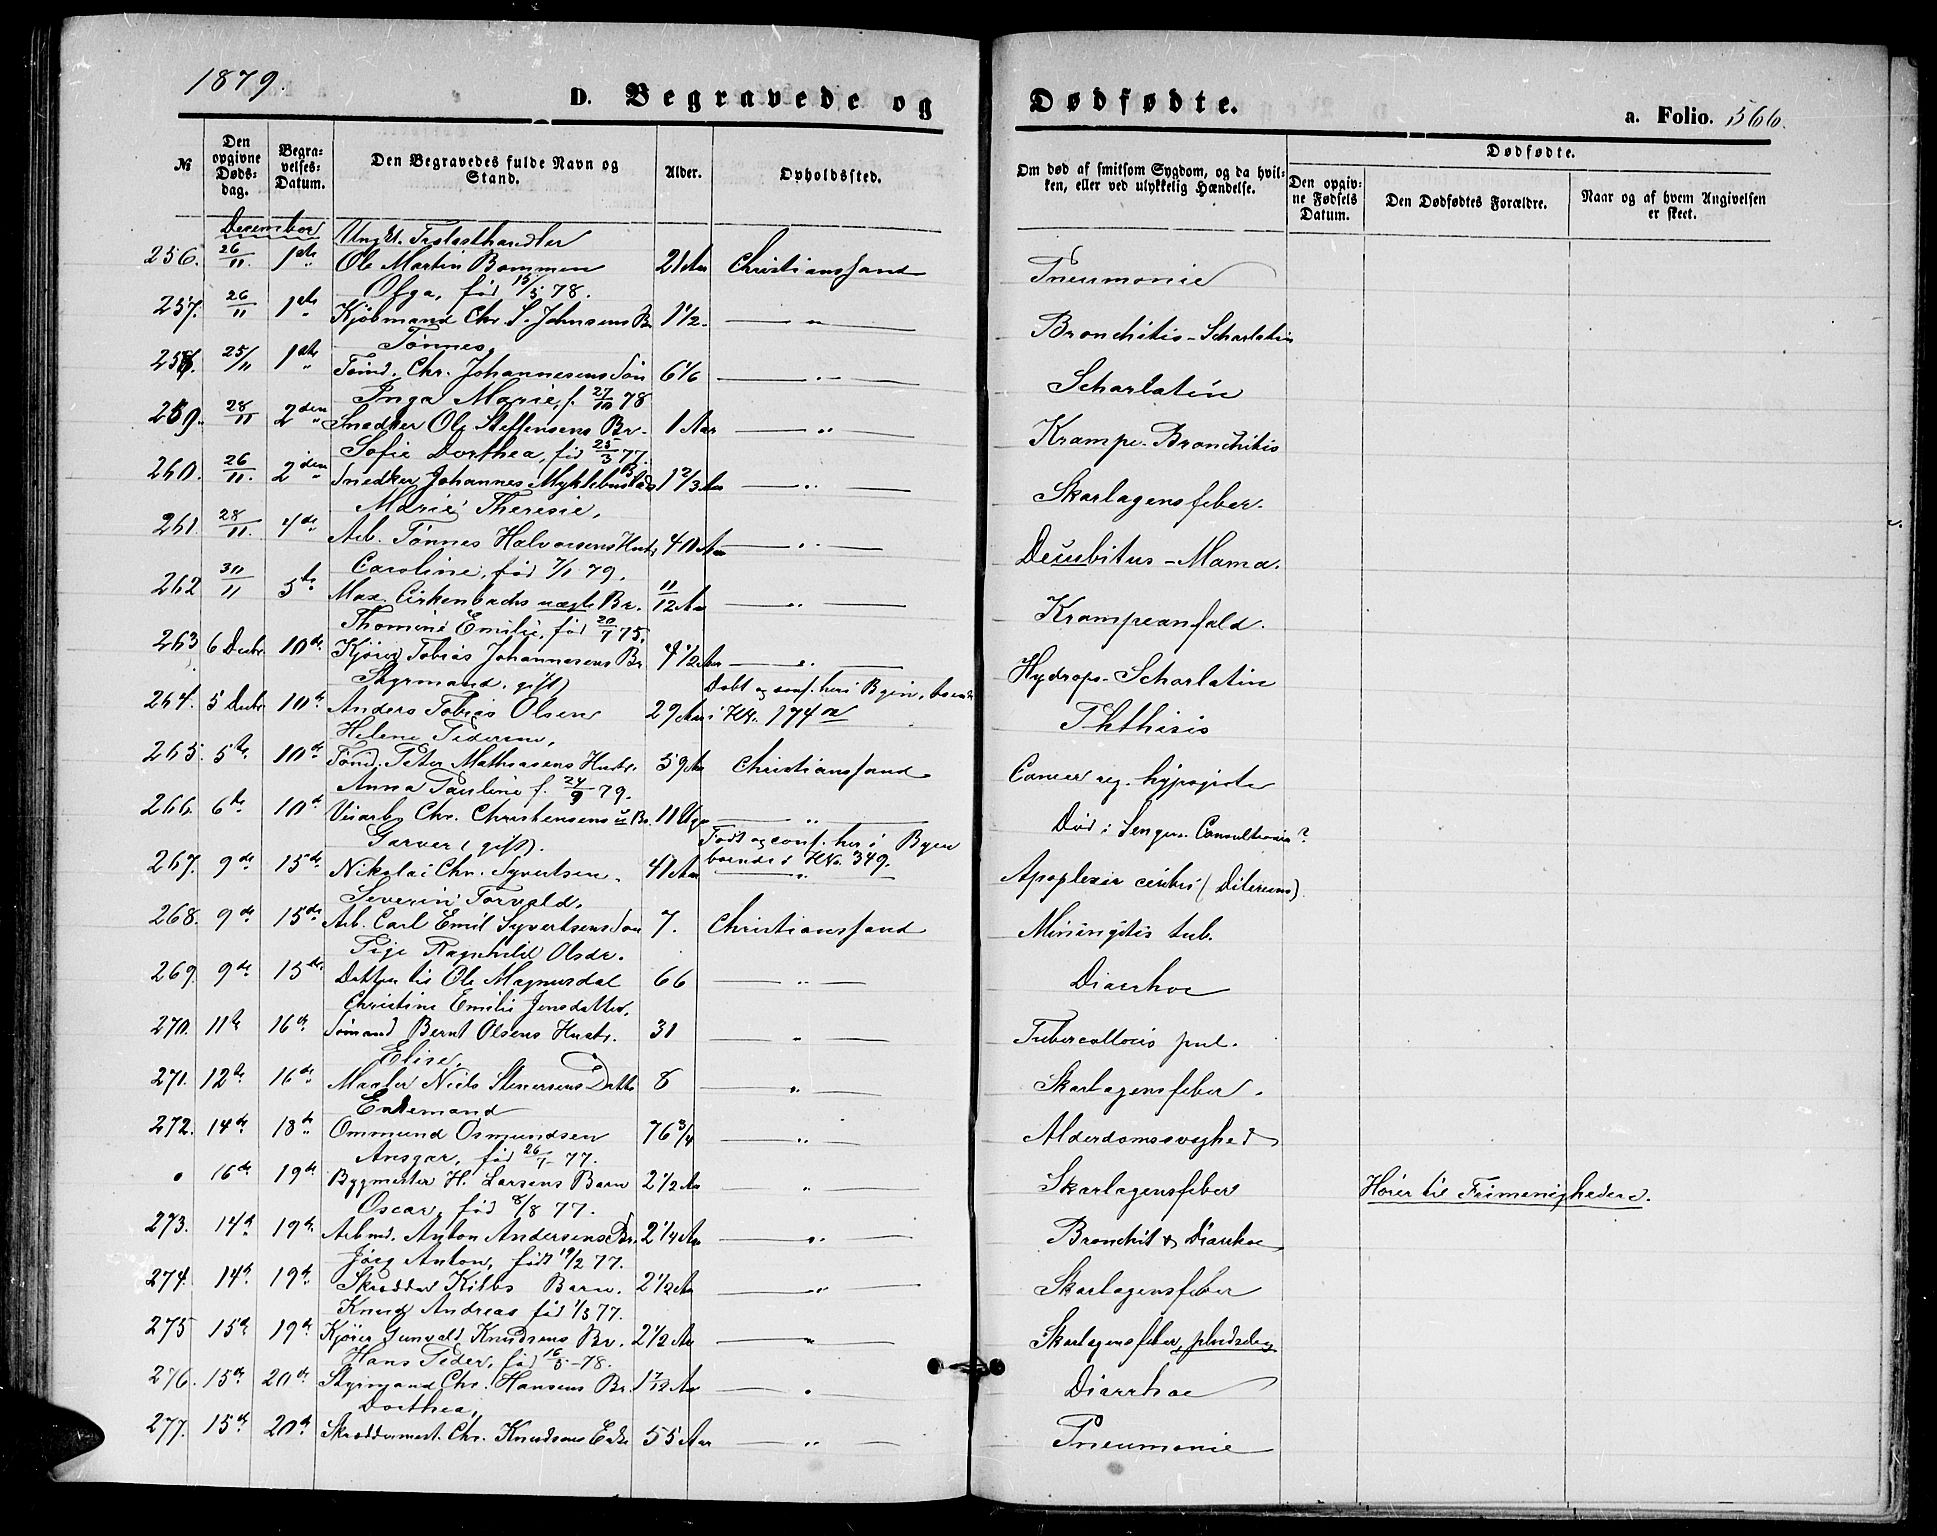 1879.
D. Begravede og
Dødfødte.
a. Folio. 566.
№
Den opgivne Døds-dag.
Begra-velses-Datum.
Den Begravedes fulde Navn og Stand.
Alder.
Opholdssted.
Om død af smitsom Sygdom, og da hvil-ken, eller ved ulykkelig Hændelse.
Dødfødte.
Den opgiv-ne Fødsels Datum.
Den Dødfødtes Forældre.
Naar og af hvem Angivelsen er skeet.
December
Ungk.
256. 26/11. 1ste Ole Martin Bommen 21 Aar Christianssand Pneumonie
Olga, fød 15/5 78.
257. 26/11 1ste Kjøbmand Chr. S. Johnsens Br 1 1/2. — " — Bronchitis-Scharlatin
Tønnes,
258. 25/11 1ste Tømd. Chr. Johannesens Søn 6 1/6 — " — Scharlatin
Inga Marie, f. 27/10 78
259. 28/11 2den Snedker Ole Steffensens Br. 1 Aar — " — Krampe-Bronchitis
Sofie Dorthea, fød 25/3 77.
260. 26/11. 2den Snedker Johannes Myklebustads B 1 2/3 Aar — " — Skarlagensfeber.
Marie Theresie,
261. 28/11. 4de Arb. Tønnes Halvorsens Hustr. 40 Aar — " — Decubitus - Mama.
Caroline, fød 7/1 79.
262 30/11 5te Max. Cirkenbachs uægte Br. 11/12 Aar — " — Krampeanfald.
Thomine Emilie, fød 20/7 75.
263 6 Decbr. 10de Kjører Tobias Johannesens Br 4 1/2 Aar — " — Hydrops-Scharlatin
Styrmand, gift)
264. 5 Decbr. 10de Anders Tobias Olsen 29 Aar Døbt og conf. her i Byen, boende i HN. 174 a Phthisis
Helene Pedersen,
265. 5te 10de Tømd. Peter Mathiasens Hustr. 59 Aar Christianssand Cancer reg. hypogistr
Anna Pauline f. 24/9 79.
266. 6te 10de Chr. Christensens u Br. 11 Uger — " — Død i Sengen. Consultionis?
Garver (gift).
267. 9de 15de Nikolai Chr. Syvertsen. 41 Aar Født og conf. her i Byen boende i HNo. 349. — " — Apoplexia cerebri (Dilerium)
Severin Torvald,
268. 9de 15de Arb. Carl Emil Syvertsens Søn 7. Christianssand Miningitis tub.
Pige Ragnhild Olsdr.
269. 9de 15de Datter til Ole Magnusdal 66 — " — Diarrhoe
Christine Emilie Jensdatter,
270. 11te 16de Sømand Bernt Olsens Hustr. 31 — " — Tubercollosis pul.
Elise,
271. 12te 16de Maaler Niels Stenersens Datter 8 — " — Skarlagensfeber.
Enkemand
272. 14de 18de Ommund Osmundsen 76 3/4 — " — Alderdomssvaghed
Ansgar, fød 26/7 77.
" 16de 19de Bygmester H. Larsens Barn 2 1/2 Aar — " — Skarlagensfeber Hører til Frimenigheden.
Oscar, fød 8/8 77.
273. 14de 19de Arbmd. Anton Andersens Br. 2 1/4 Aar — " — Bronchit & Diarrhoe
Jørg Anton, født 19/2 77.
274. 14de 19de Skrædder Kilbs Barn. 2 1/2 Aar — " — Skarlagensfeber
Knud Andreas fød 1/5 77.
275 15de 19de Kjører Gunvald Knudsens Br. 2 1/2 Aar — " — Skarlagensfeber, pludselig
Hans Peder, fød 16/5 - 78.
276. 15de 20de Styrmand Chr. Hansens Br. 1 7/12 Aar — " — Diarrhoe
Dorthea,
277. 15de 20de Skræddermest. Chr. Knudsens Enke 55 Aar — " — Pneumonie